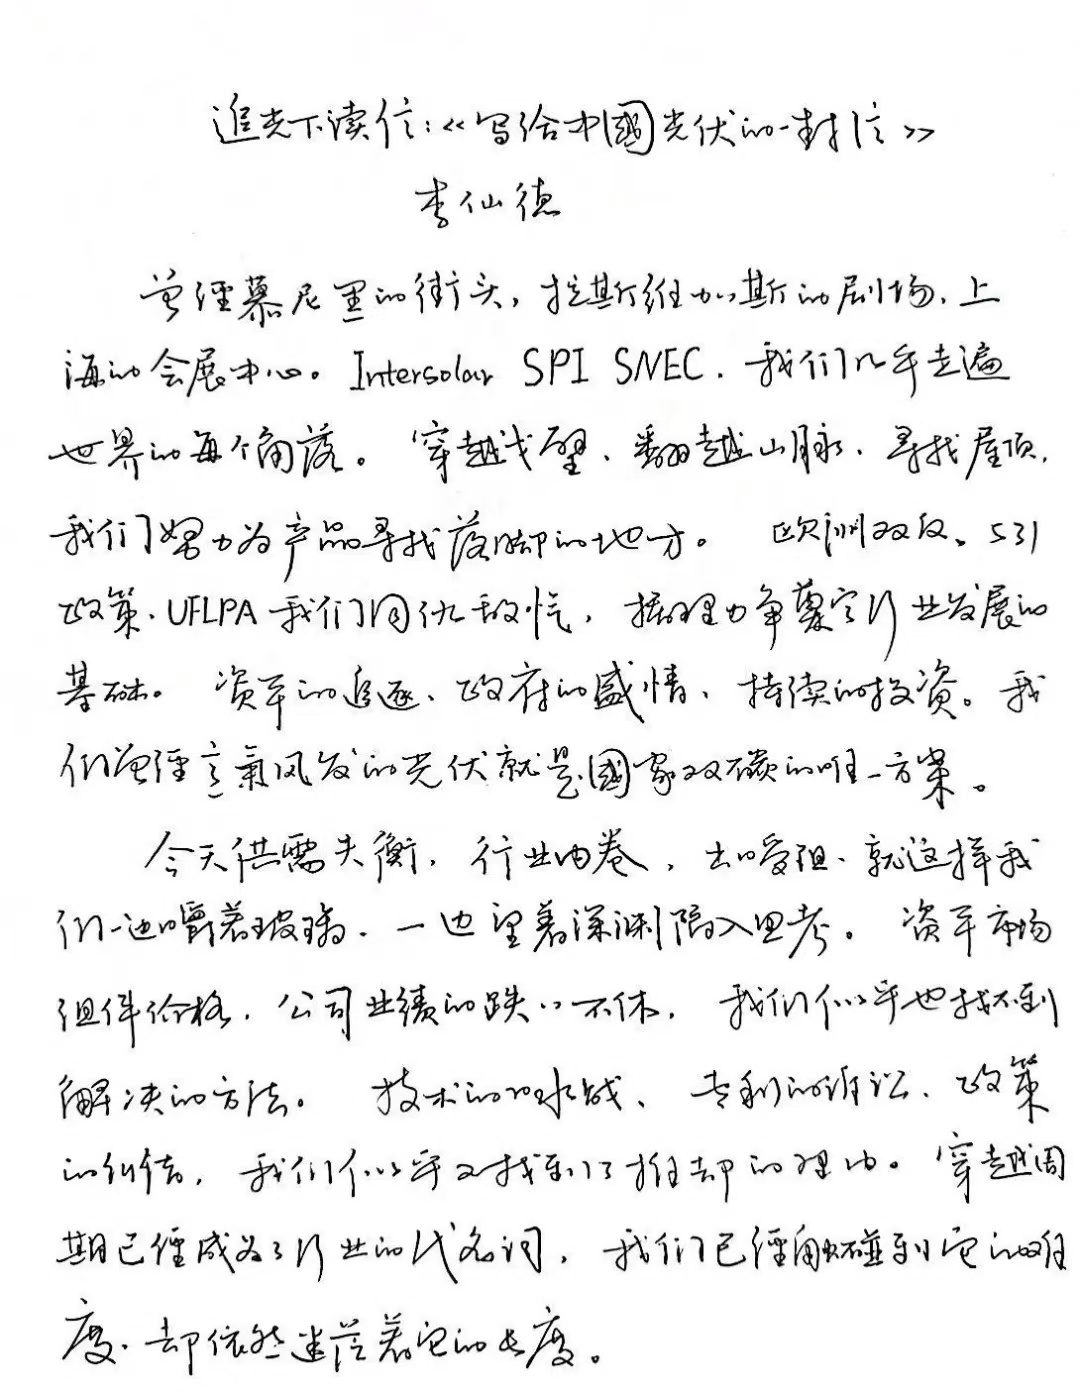 追光下读信：《写给中國光伏的一封信》
李仙德
曾经慕尼黑的街头，拉斯维加斯的剧场、上
海的会展中心。Intersolar SPI SNEC，我们几乎走遍
世界的每个角落。穿越戈壁、翻越山脉、寻找屋顶，
我们努力为产品寻找落脚的地方。欧洲双反、531
政策、UFLPA 我们同仇敌忾，据理力争奠定行业发展的
基础。资本的追逐、政府的盛情、持续的投资。我
们曾经意氣风发的光伏就是國家双碳的唯一方案。
今天供需失衡，行业内卷，出口受阻、就这样我
们一边嚼着玻璃、一边望着深渊陷入思考。资本市场
组件价格，公司业绩的跌跌不休，我们似乎也找不到
解决的方法。技术的口水战、专利的诉讼、政策
的纠结，我们似乎又找到了推却的理由。穿越周
期已经成为了行业的代名词，我们已经触碰到它的难
度、却依然迷茫着它的长度。